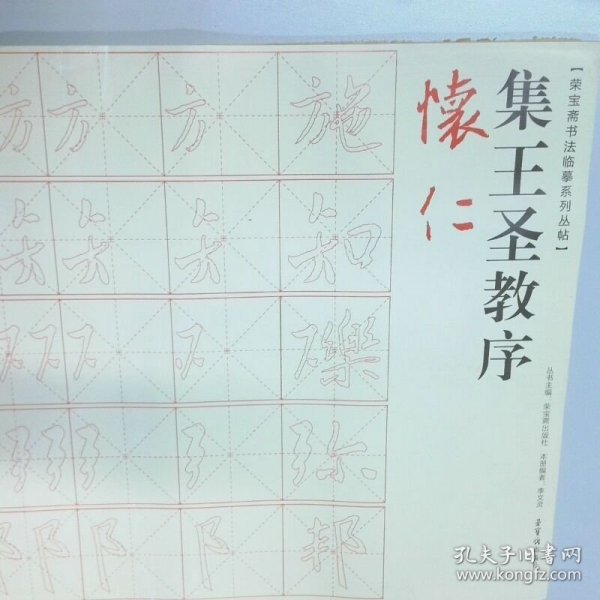 【荣宝斋书法临摹系列丛帖】
集王圣教序
懷仁
丛书主编：荣宝斋出版社 本册编者：李文
施知礫弥邦
方
方
方
孔夫子旧书网
www.kongfz.com